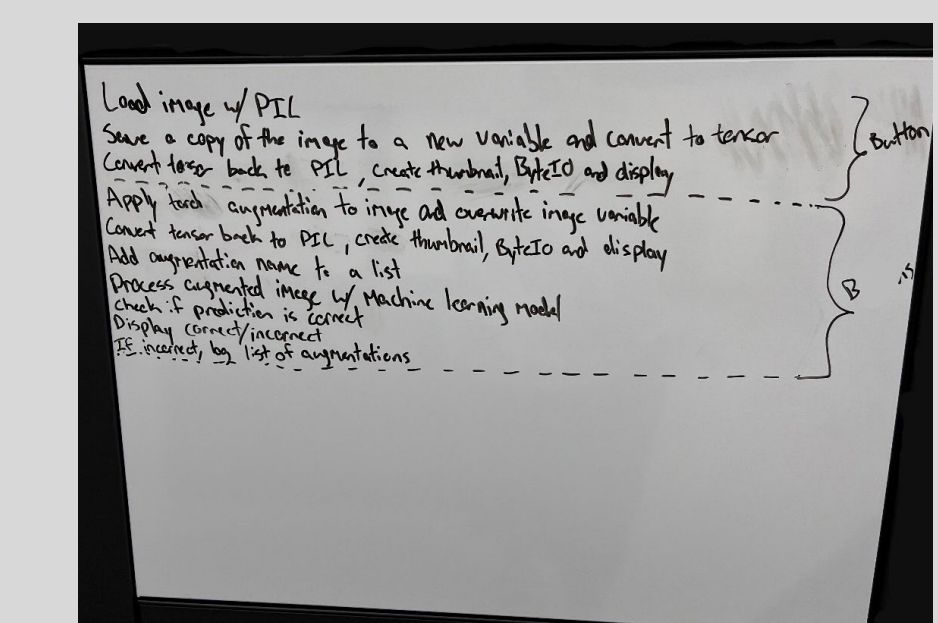 Load image w/ PIL
Save a copy of the image to a new variable and convert to tensor
Convert tensor back to PIL, create thumbnail, ByteIO and display
Button
Apply torch augmentation to image and overwrite image variable
Convert tensor back to PIL, create thumbnail, ByteIO and display
Add augmentation name to a list
Process augmented image w/ Machine learning model
Check if prediction is correct
Display correct/incorrect
If incorrect, log list of augmentations
B